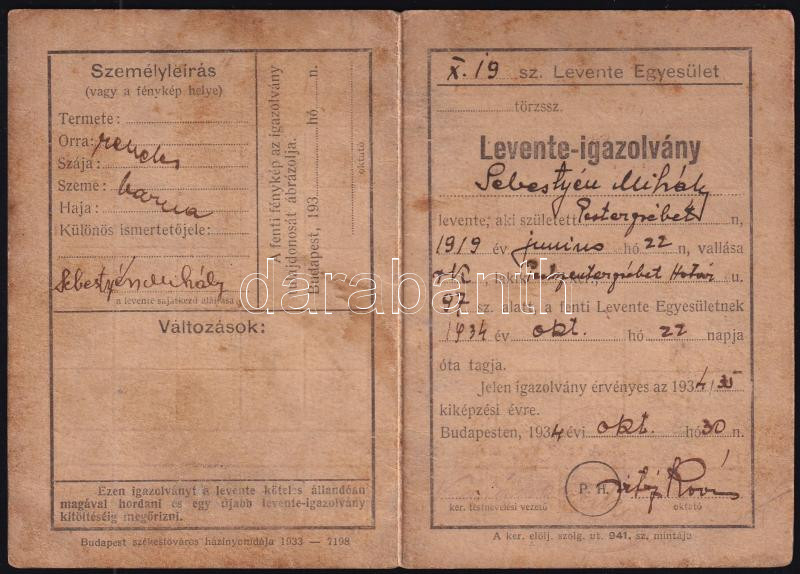 Személyleírás
(vagy a fénykép helye)
Termete:
Orra: rendes
Szája:
Szeme: barna
Haja:
Különös ismertetőjele:
Sebestyén Mihály
a levente sajátkezű aláírása
A fenti fénykép az igazolvány
tulajdonosát ábrázolja.
Budapest, 193 hó n.
oktató
Változások:
Ezen igazolványt a levente köteles állandóan
magával hordani és egy újabb levente-igazolvány
kitöltéséig megőrizni.
Budapest székesfőváros házinyomdája 1933 — 7198
X. 19 sz. Levente Egyesület
törzssz.
Levente-igazolvány
Sebestyén Mihály
levente, aki született Pesterzsébet n,
1919 év junius hó 22 n, vallása
rk. lakik ker., Pestszenterzsébet Határ u.
97 sz. alatt, a fenti Levente Egyesületnek
1934 év okt. hó 22 napja
óta tagja.
Jelen igazolvány érvényes az 1934/35
kiképzési évre.
Budapesten, 1934 évi okt. hó 30 n.
P. H.
ker. testnevelési vezető oktató
A ker. elölj. szolg. ut. 941. sz. mintája
darabanth